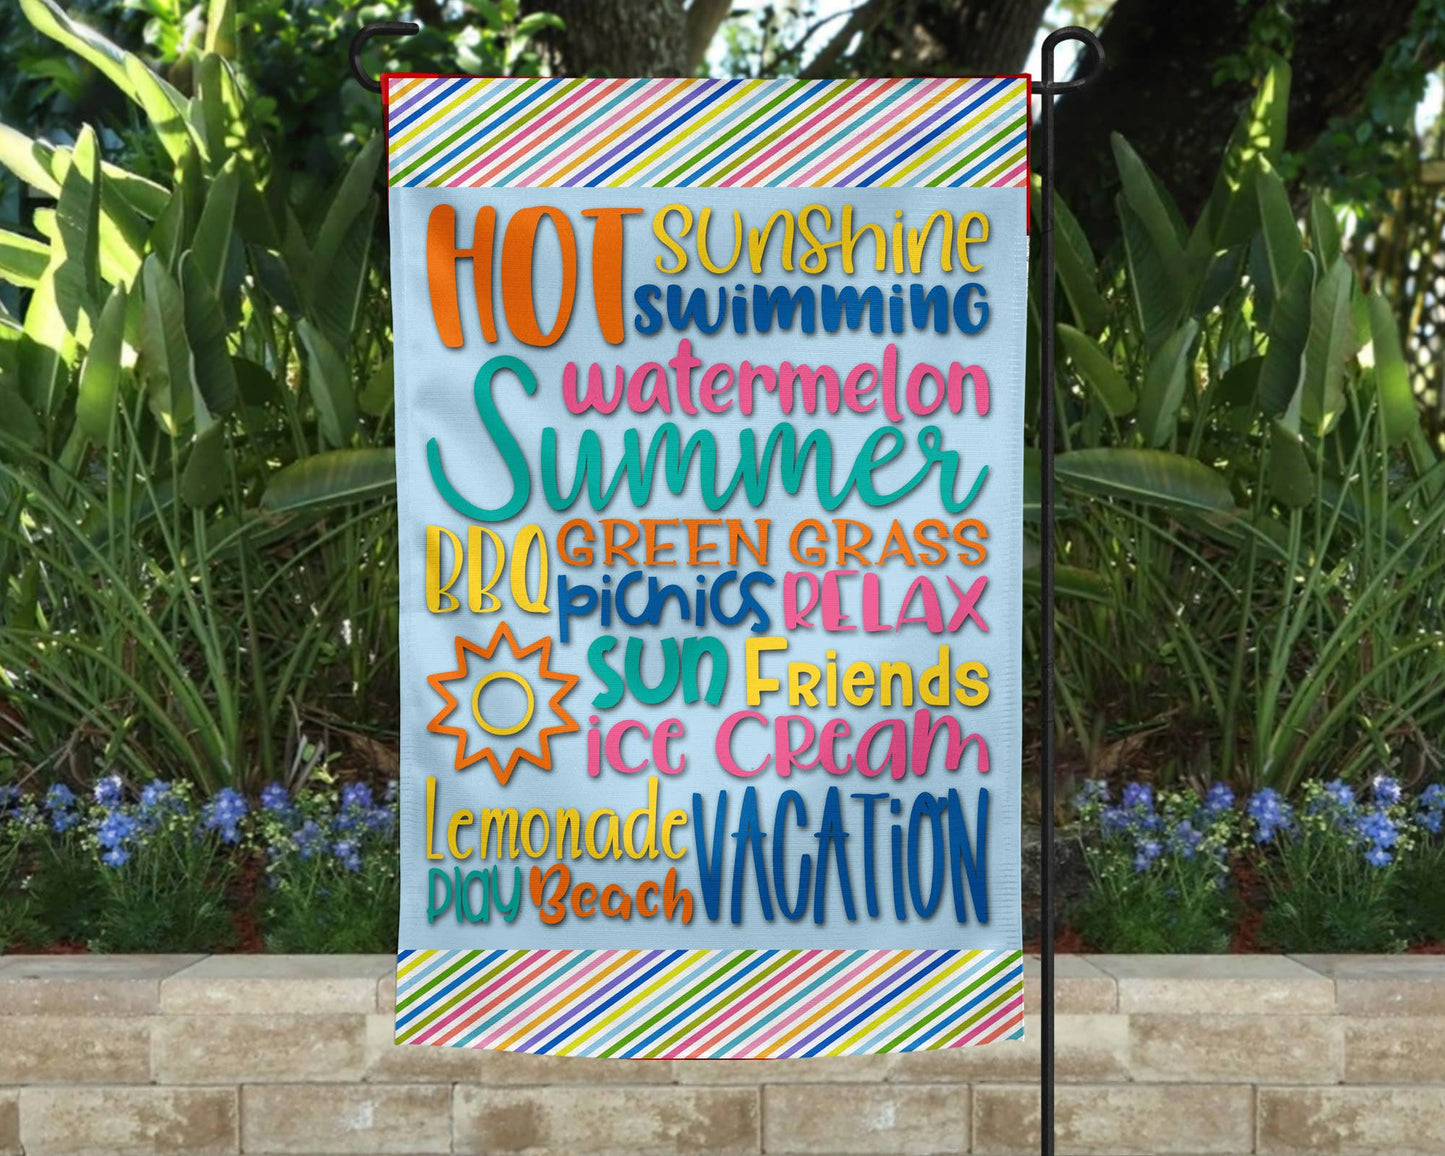 HOT sunshine
swimming
watermelon
Summer
BBQ GREEN GRASS
picnics RELAX
sun Friends
ice Cream
Lemonade VACATION
play Beach